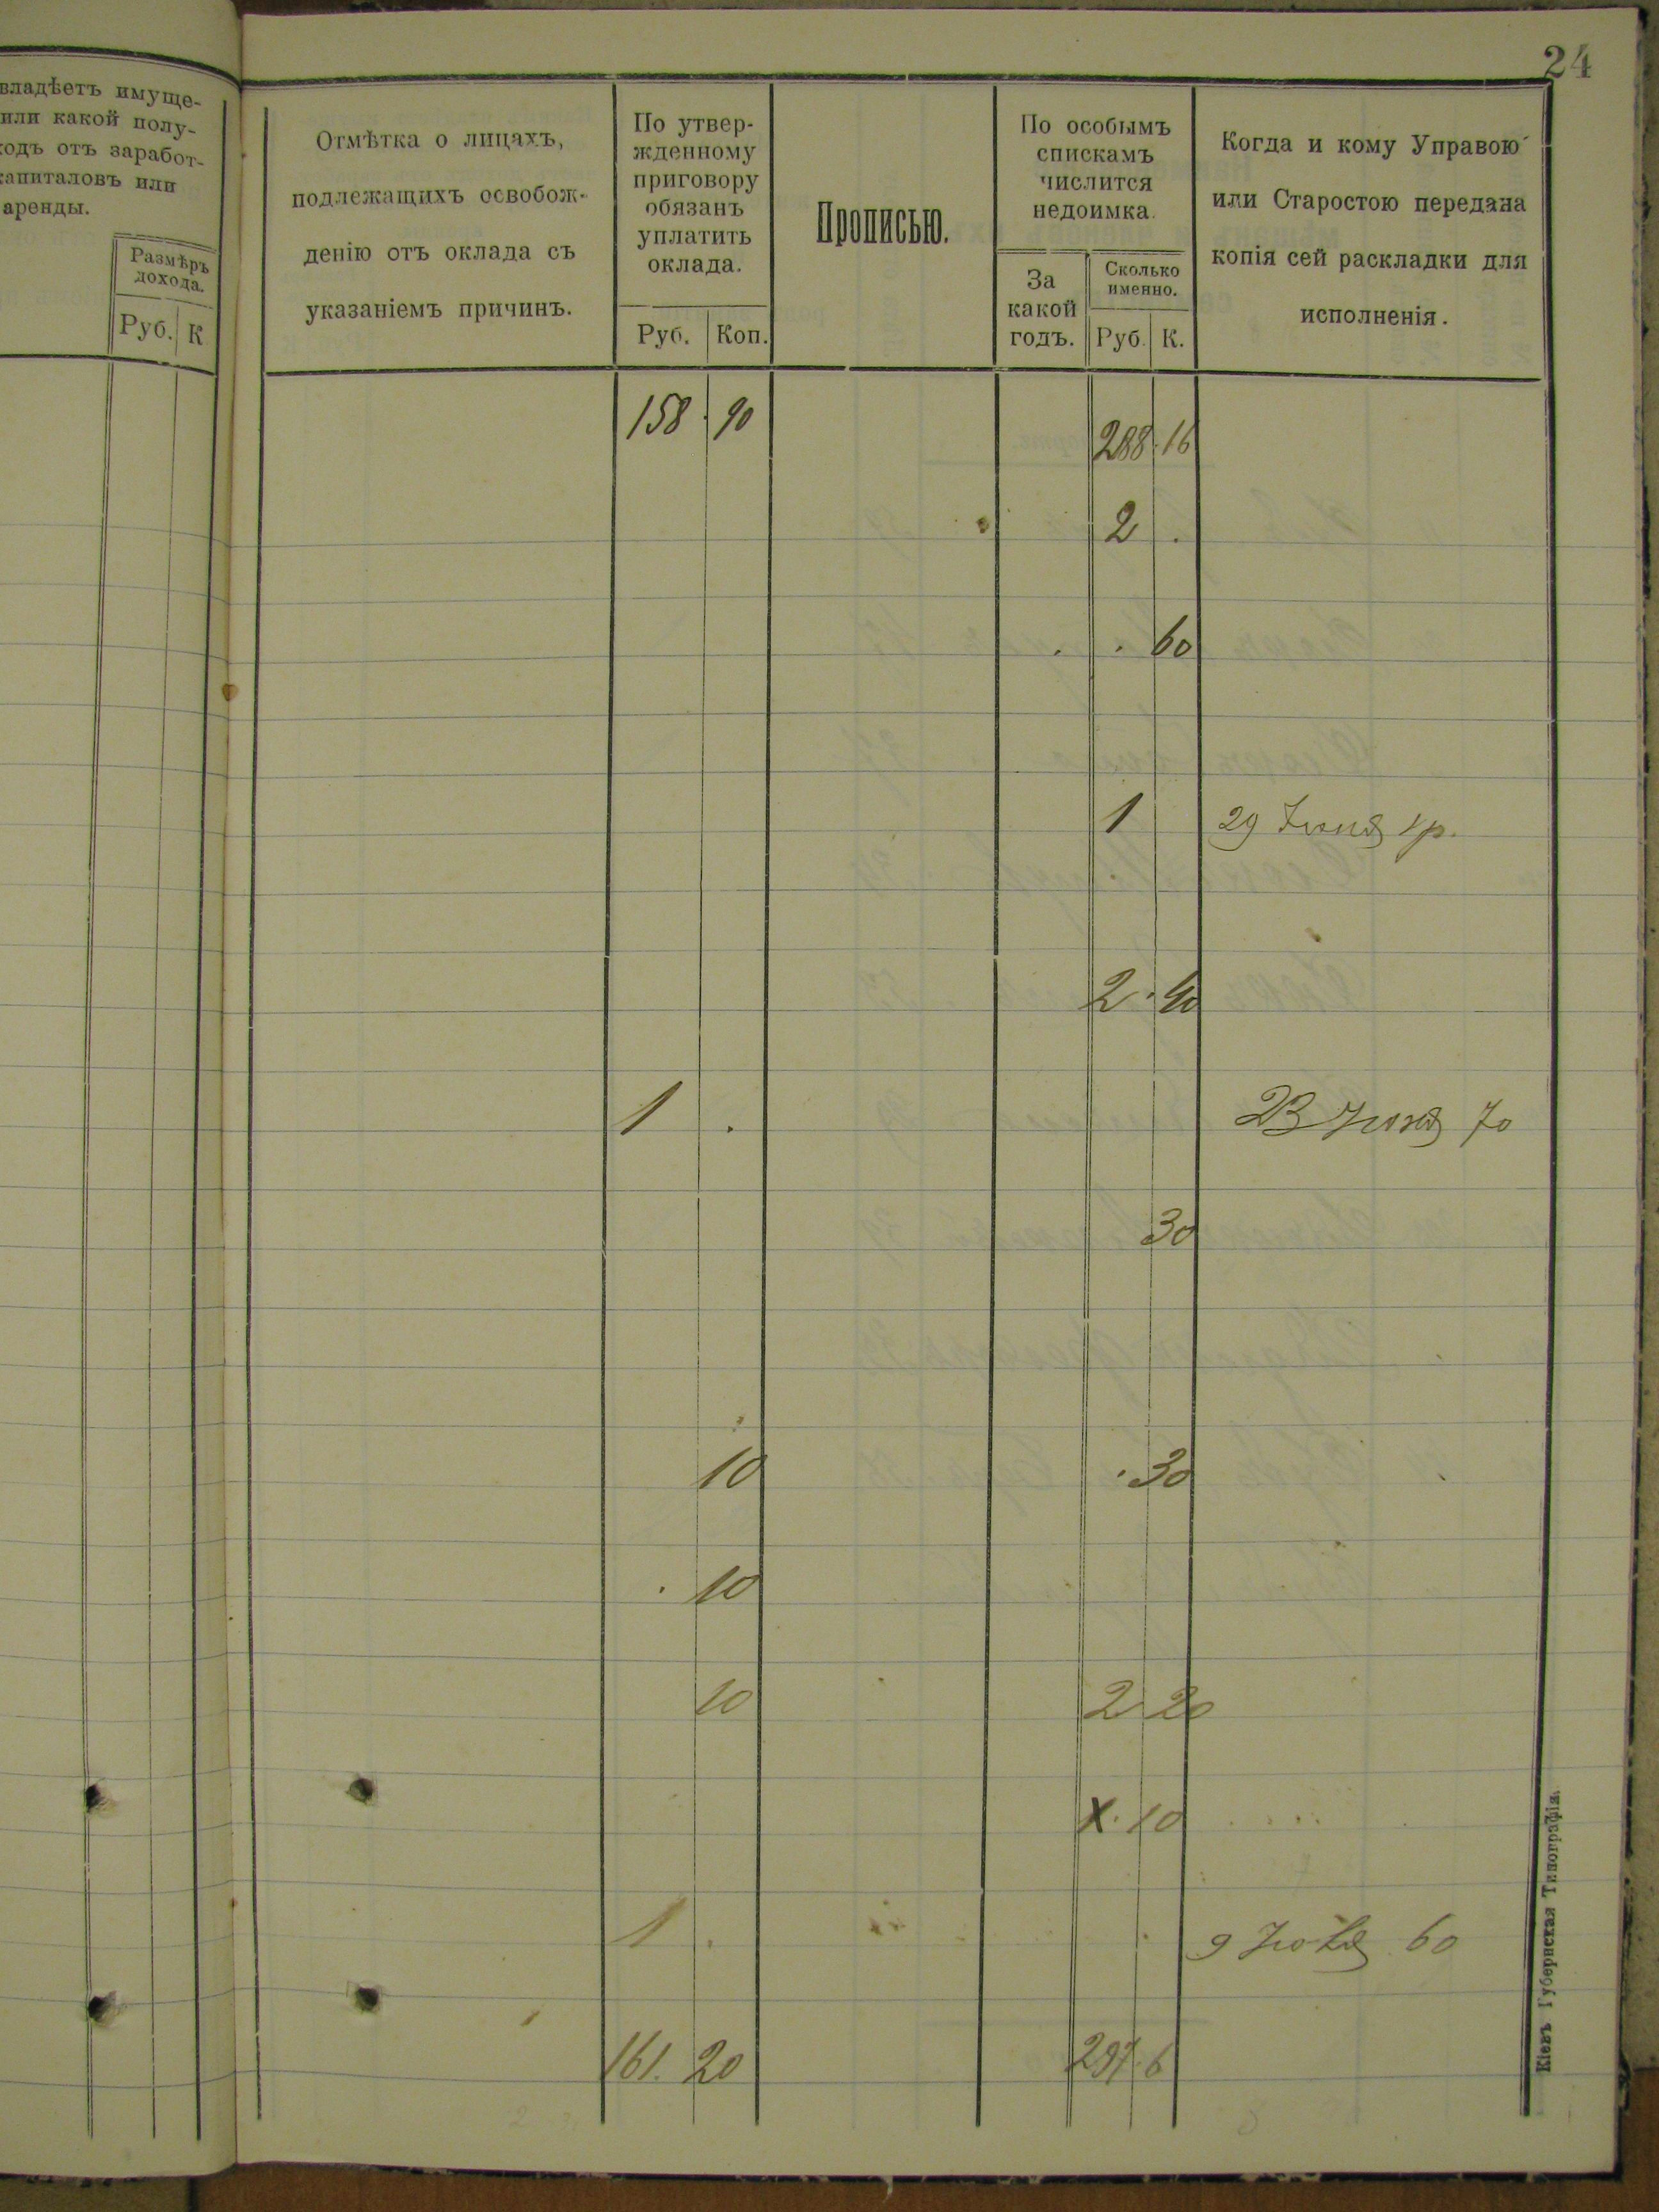 24
владѣетъ имуще-
или какой полу-
ходъ отъ заработ-
капиталовъ или
аренды.
Размѣръ
дохода.
Руб. К
Отмѣтка о лицахъ,
подлежащихъ освобож-
денію отъ оклада съ
указаніемъ причинъ.
По утвер-
жденному
приговору
обязанъ
уплатить
оклада.
Руб. Коп.
Прописью.
По особымъ
спискамъ
числится
недоимка.
За
какой
годъ.
Сколько
именно.
Руб. К.
Когда и кому Управою
или Старостою передана
копія сей раскладки для
исполненія.
158 90 288 16
2 .
. 60
1 29 Іюня 1р.
2 90
1 . 23 Іюня 70
30
10 . 30
. 10
10 2 20
X. 10
1 . 9 Іюля 60
161. 20 297 6
Кіевъ Губернская Типографія.